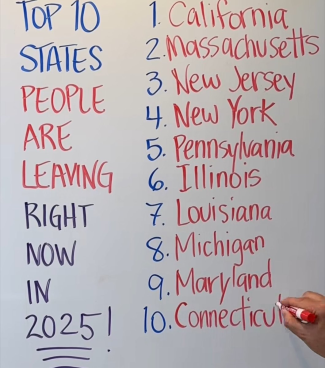 TOP 10
STATES
PEOPLE
ARE
LEAVING
RIGHT
NOW
IN
2025!
1. California
2. Massachusetts
3. New Jersey
4. New York
5. Pennsylvania
6. Illinois
7. Louisiana
8. Michigan
9. Maryland
10. Connecticut